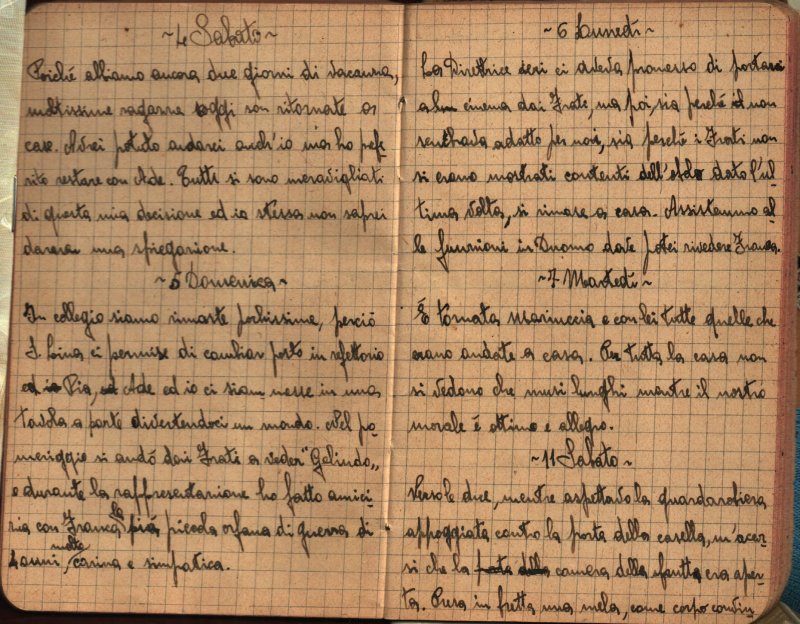 ~ 4 Sabato ~
Poiché abbiamo ancora due giorni di vacanza,
moltissime ragazze oggi son ritornate a
casa. Avrei potuto andarci anch'io ma ho pefe
rito restare con Ade. Tutti si sono meravigliati
di questa mia decisione ed io stessa non saprei
darne una spiegazione.
~ 5 Domenica ~
In collegio siamo rimaste pochissime, perciò
S. Lina ci permise di cambiar posto in refettorio
ed io Pia, ed Ade ed io ci siam messe in una
tavola a parte divertendoci un mondo. Nel po-
meriggio si andò dai Frati a veder "Gelindo"
e durante la rappresentazione ho fatto amici-
zia con Franca la più piccola orfana di guerra di
4 anni, molto carina e simpatica.
~ 6 Lunedì ~
La Direttrice ieri ci aveva promesso di portarci
al cinema dai Frati, ma poi, sia perché il non
sembrava adatto per noi, sia perché i Frati non
si erano mostrati contenti dell' dato l'ul-
tima volta, si rimase a casa. Assistemmo al-
le funzioni in Duomo dove potei rivedere Franca.
~ 7 Martedì ~
È tornata Mariuccia e con lei tutte quelle che
erano andate a casa. Per tutta la casa non
si vedono che musi lunghi mentre il nostro
morale è ottimo e allegro.
~ 11 Sabato ~
Verso le due, mentre aspettavo la guardarobiera
appoggiata contro la porta della casella, m'accor-
si che la porta della camera della frutta era aper-
ta. Presi in fretta una mela, come corpo contun-